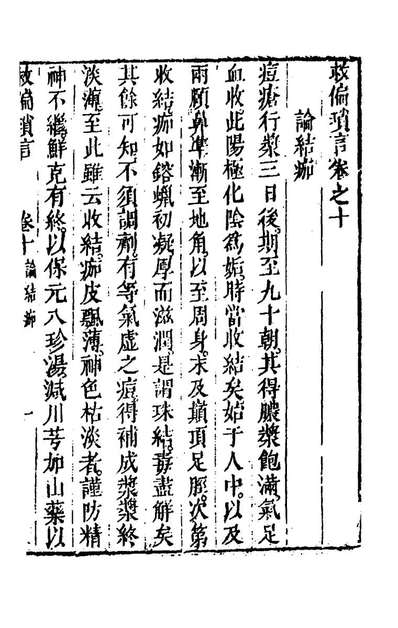 救偏瑣言卷之十
論結痂
痘瘡行漿三日後期至九十朝其得膿漿飽滿氣足
血收此陽極化陰爲姤時當收結矣始于人中以及
兩顴鼻準漸至地角以至周身末及巔頂足脛次第
收結痂如鎔蠟初凝厚而滋潤是謂珠結毒盡解矣
其餘可知不須調劑有等氣虛之痘得補成漿漿終
淡薄至此雖云收結痂皮飄薄神色枯淡者謹防精
神不繼鮮克有終以保元八珍湯減川芎加山藥以
救偏瑣言
卷十論結痂
一